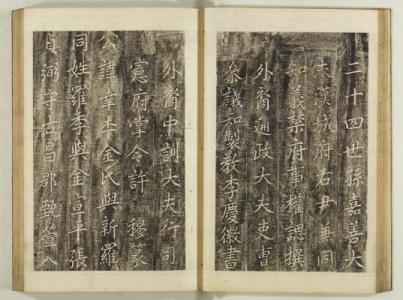 二十四世孫嘉善大
夫漢城府右尹兼同
知義禁府事權諰撰
外裔通政大夫吏曹
參議知製敎李慶徽書
外裔中訓大夫行司
憲府掌令許穆篆
公諱幸本金氏與新羅
同姓羅季與金宣平張
貞弼守古昌郡甄萱入